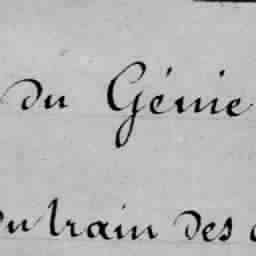 du Génie
du train des